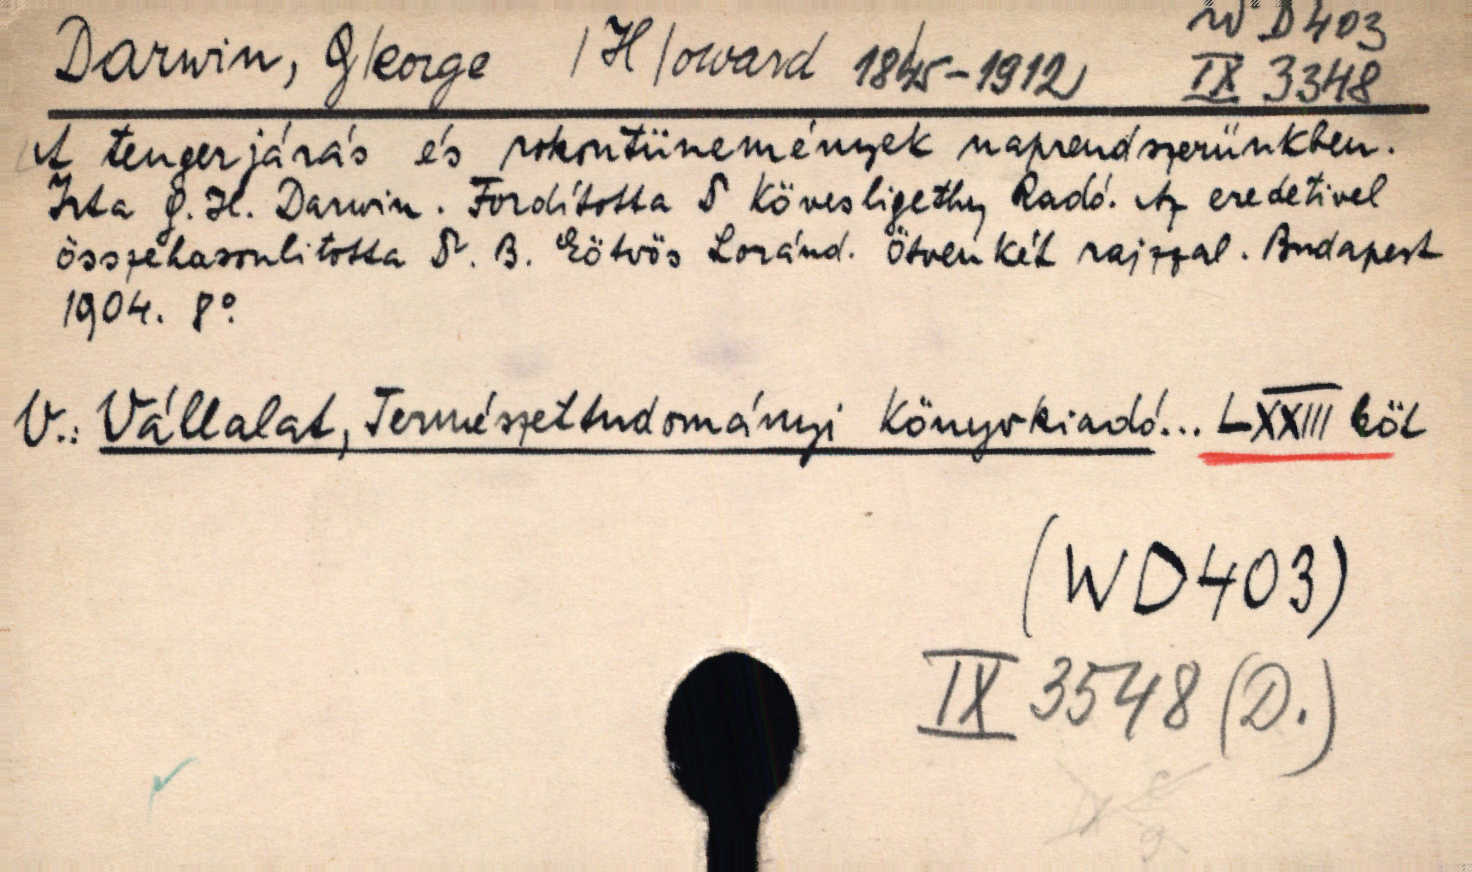 Darwin, G/eorge /H/oward 1845-1912
W D 403
IX 3348
A tengerjárás és rokontünemények naprendszerünkben.
Irta G. H. Darwin. Fordította Dr Kövesligethy Radó. Az eredetivel
összehasonlította Dr. B. Eötvös Loránd. Ötvenkét rajzzal. Budapest
1904. 8°.
V.: Vállalat, Természettudományi Könyvkiadó... LXXIII köt
(WD403)
IX 3548 (D.)